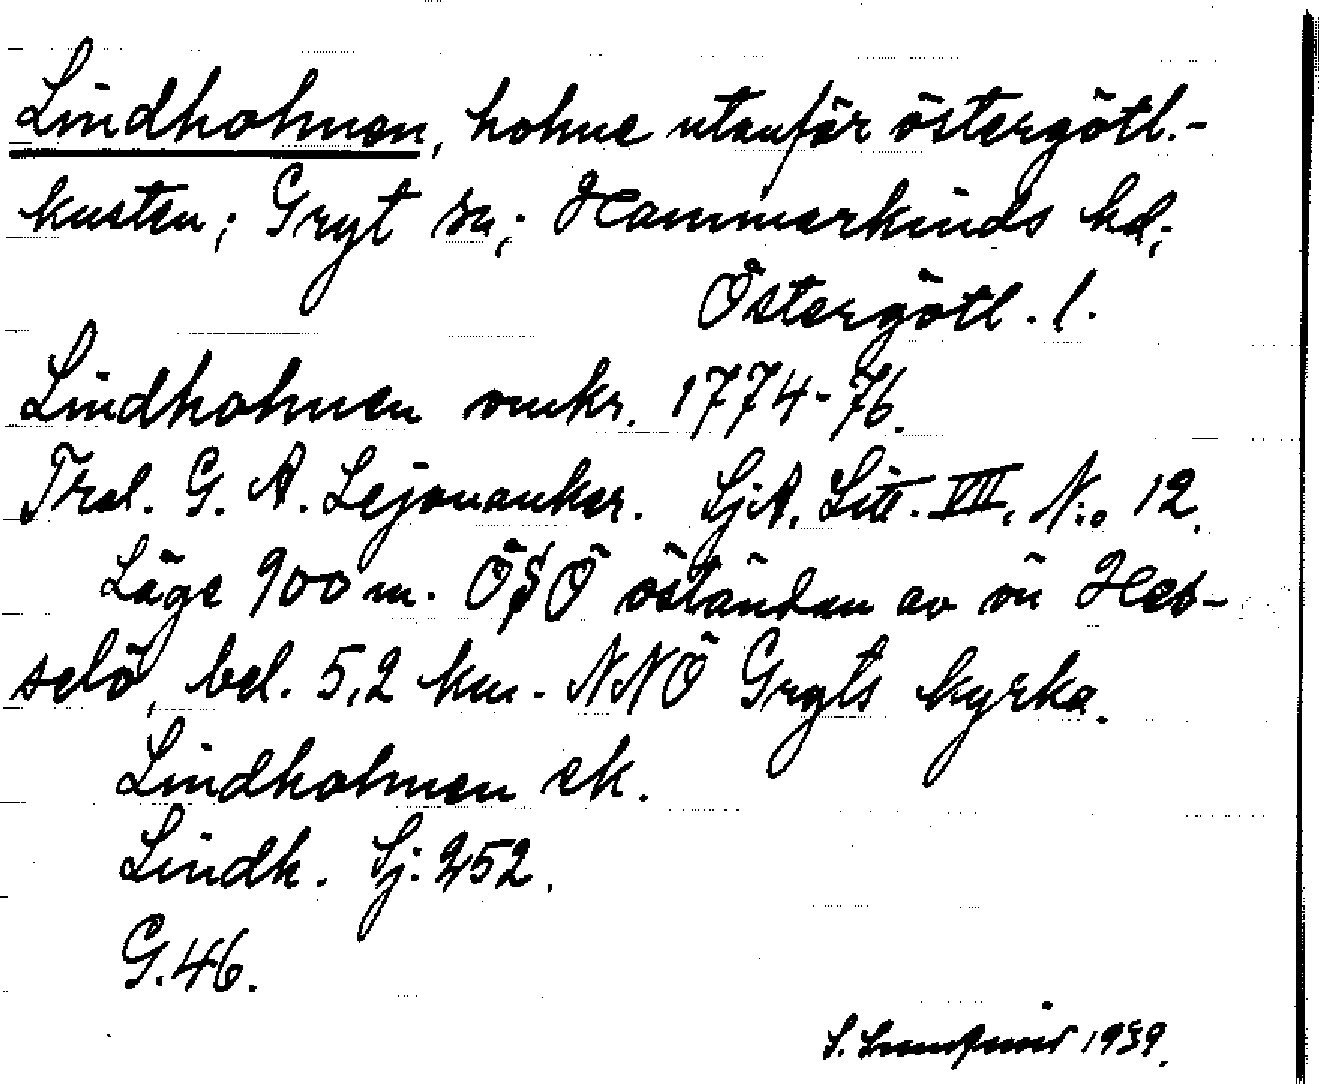 Lindholmen, holme utanför östergötl.-
kusten; Gryt sn; Hammarkinds hd;
Östergötl. l.
Lindholmen omkr. 1774-76.
Trol. G. A. Lejonanker. SjA, Litt. VIII, N:o 12.
Läge 900 m. ÖSÖ öständan av ön Häs-
selö, bel. 5,2 km. NNÖ Gryts kyrka.
Lindholmen ek.
Lindh. Sj. 252.
G. 46.
S. 1939.